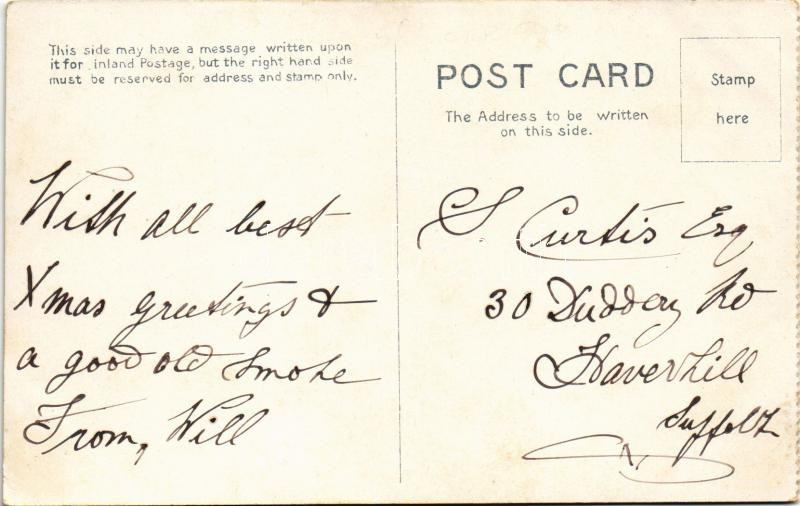 This side may have a message written upon
it for inland Postage, but the right hand side
must be reserved for address and stamp only.
POST CARD
The Address to be written
on this side.
Stamp
here
With all best
Xmas greetings &
a good old smoke
From, Will
S Curtis Esq
30 Duddery Rd
Haverhill
Suffolk